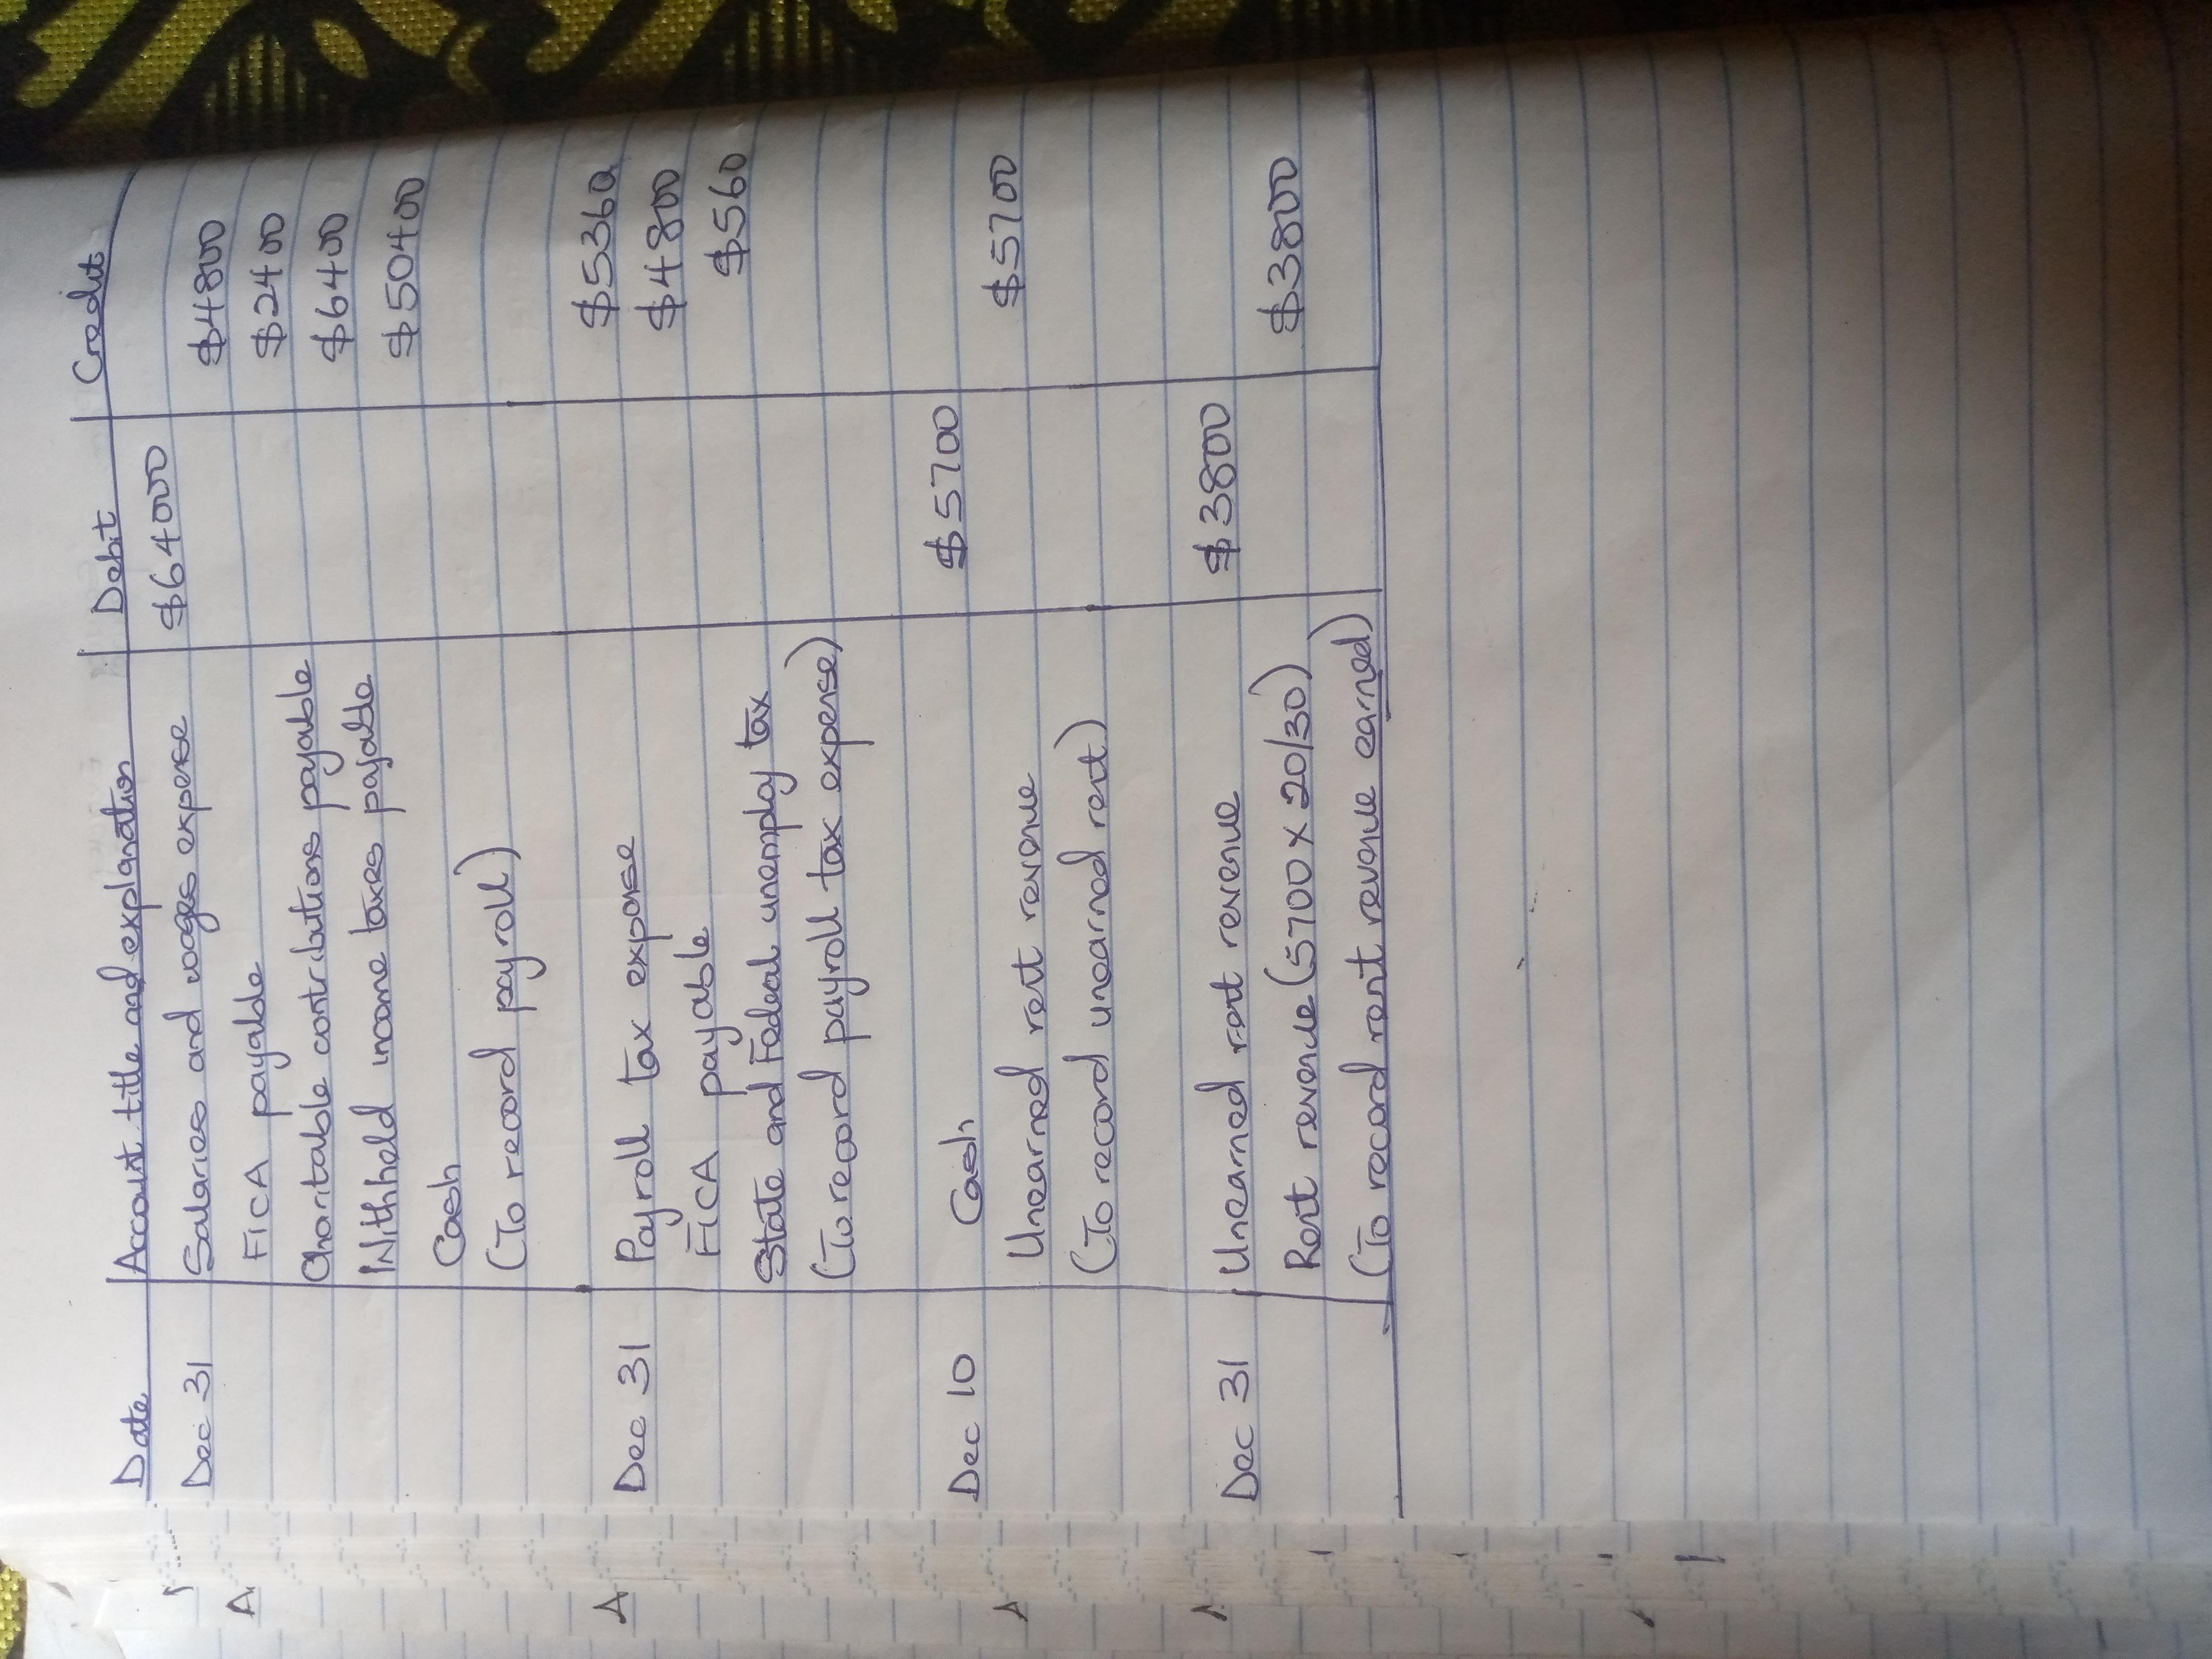 Date Account title and explanation Debit Credit
Dec 31 Salaries and wages expense $64000
FICA payable $4800
Charitable contributions payable $2400
Withheld income taxes payable $6400
Cash $50400
(To record payroll)
Dec 31 Payroll tax expense $5360
FICA payable $4800
State and Federal unemploy tax $560
(To record payroll tax expense)
Dec 10 Cash $5700
Unearned rent revenue $5700
(To record unearned rent)
Dec 31 Unearned rent revenue $3800
Rent revenue (5700 x 20/30) $3800
(To record rent revenue earned)